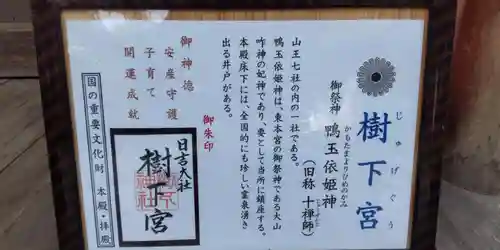 樹下宮
じゅげぐう
御祭神 鴨玉依姫神
かもたまよりひめのかみ
(旧称 十禅師)
じゅうぜんじ
山王七社の内の一社である。
鴨玉依姫神は、東本宮の御祭神である大山
咋神の妃神であり、要として当所に鎮座する。
本殿床下には、全国的にも珍しい霊泉湧き
出る井戸がある。
御朱印
御神徳
安産守護
子育て
開運成就
日吉大社
樹下宮
国の重要文化財 本殿・拝殿